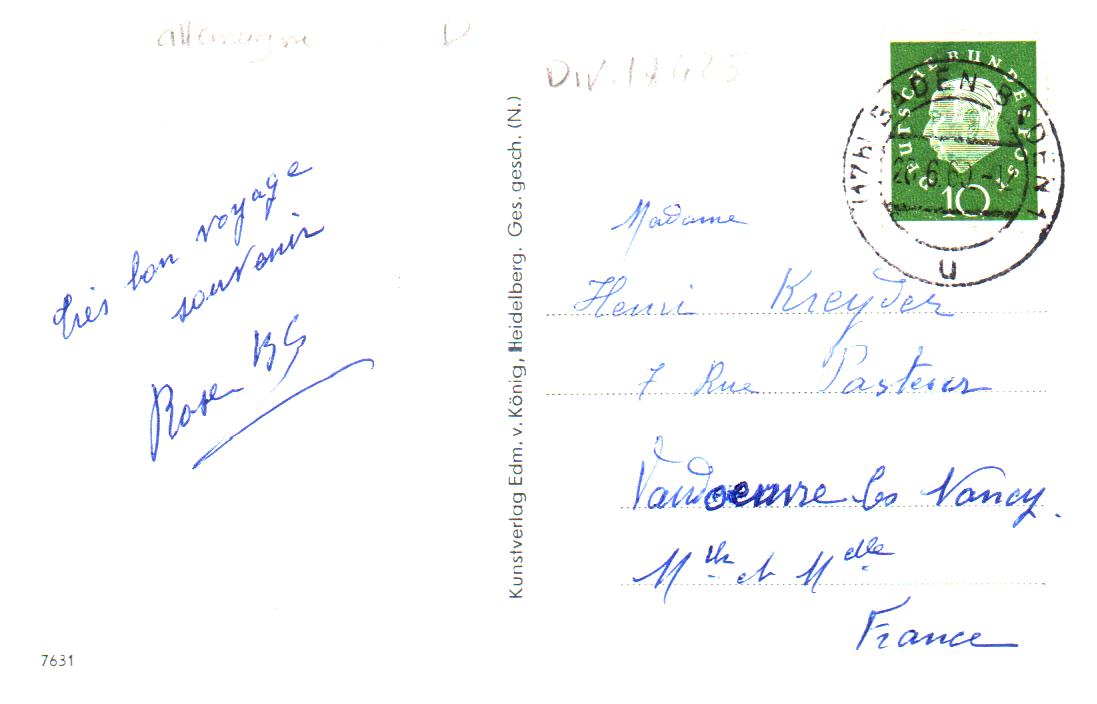 allemagne D
très bon voyage
souvenir
7631
Kunstverlag Edm. v. König, Heidelberg. Ges. gesch. (N.)
DEUTSCHE BUNDESPOST
10
(17b) BADEN-BADEN 1
20.6.60.-12
u
Madame
Henri Kreyder
7 Rue Pasteur
Vandoeuvre les Nancy.
et Melle
France